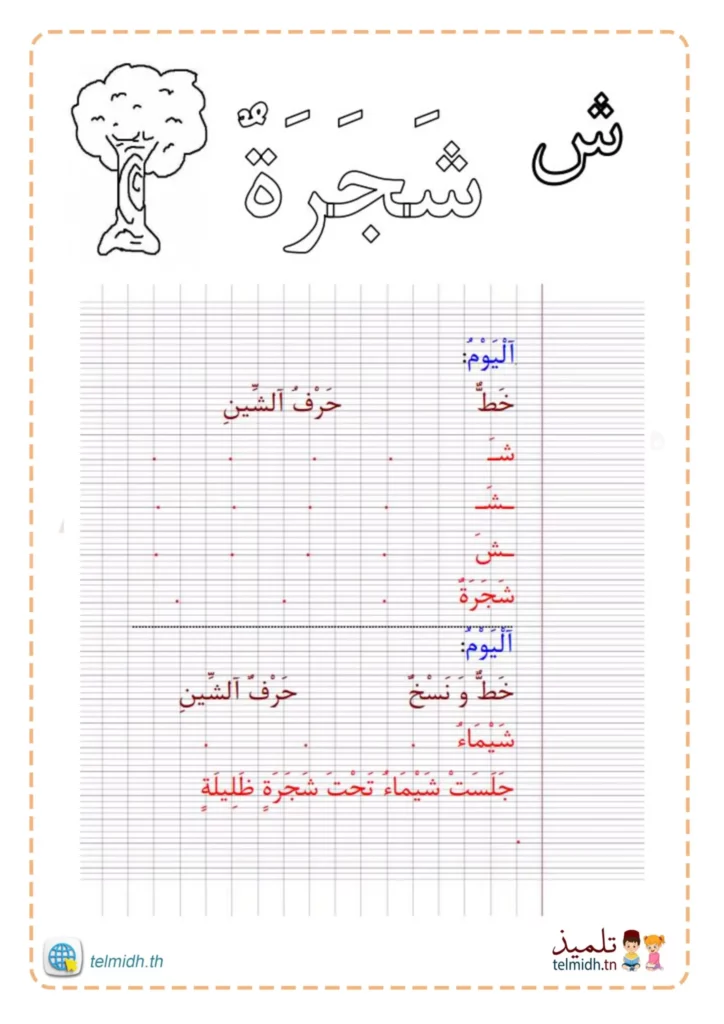 ش
شَجَرَةٌ
اَلْيَوْمُ:
خَطٌّ حَرْفُ اَلشِّينِ
شَـ . . . .
ـشَـ . . . .
ـشَ . . . .
شَجَرَةٌ . . .
اَلْيَوْمُ:
خَطٌّ وَ نَسْخٌ حَرْفُ اَلشِّينِ
شَيْمَاءُ . . .
جَلَسَتْ شَيْمَاءُ تَحْتَ شَجَرَةٍ ظَلِيلَةٍ
.
تلميذ
telmidh.tn
telmidh.th